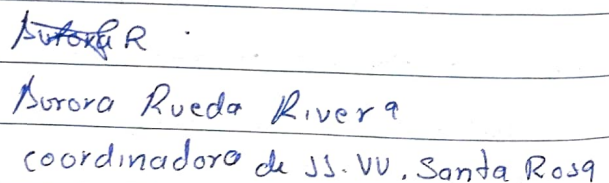 Aurora R
Aurora Rueda Rivera
coordinadora de JJ. VV. Santa Rosa